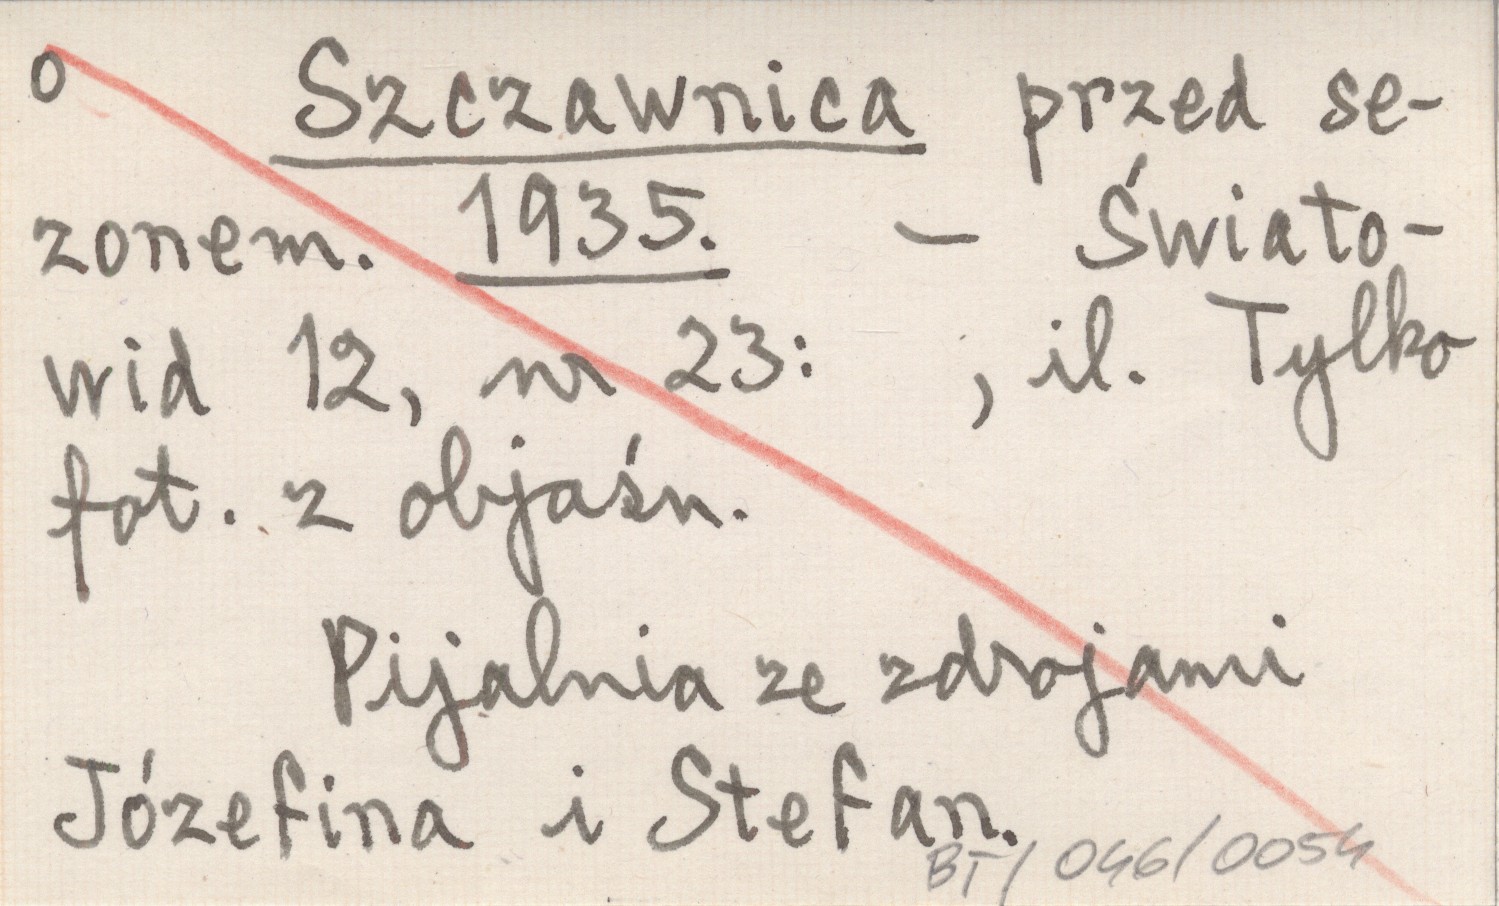 o Szczawnica przed se-
zonem. 1935. - Świato-
wid 12, nr 23: , il. Tylko
fot. z objaśn.
Pijalnia ze zdrojami
Józefina i Stefan.
BT/046/0054